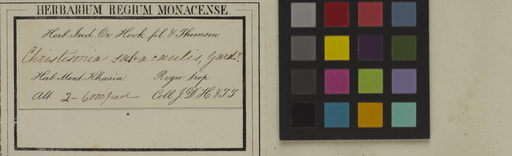 HERBARIUM REGIUM MONACENSE
Herb. Ind. Or. Hook. fil. & Thomson
Christisonia subacaulis, Gard.?
Hab. Mont. Khasia Regio trop.
Alt. 2-6000 ped. Coll. J. D. H. & T. T.